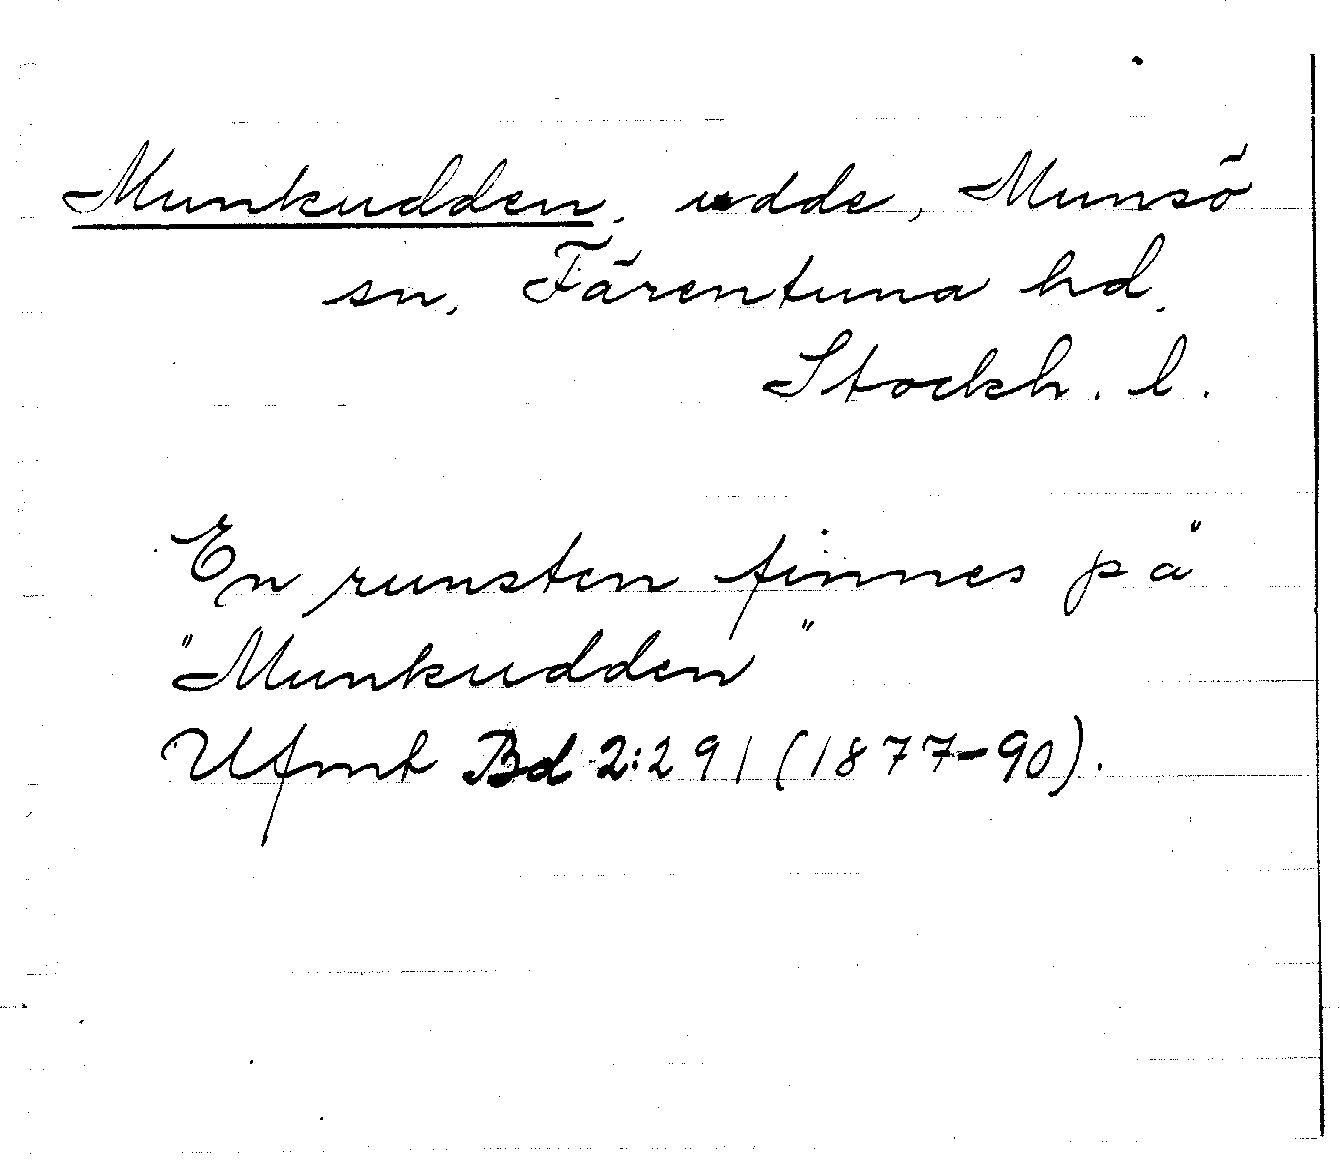 Munkudden. udde, Munsö
sn, Färentuna hd,
Stockh. l.
En runsten finnes på
"Munkudden"
Ufmt Bd 2:291 (1877-90).